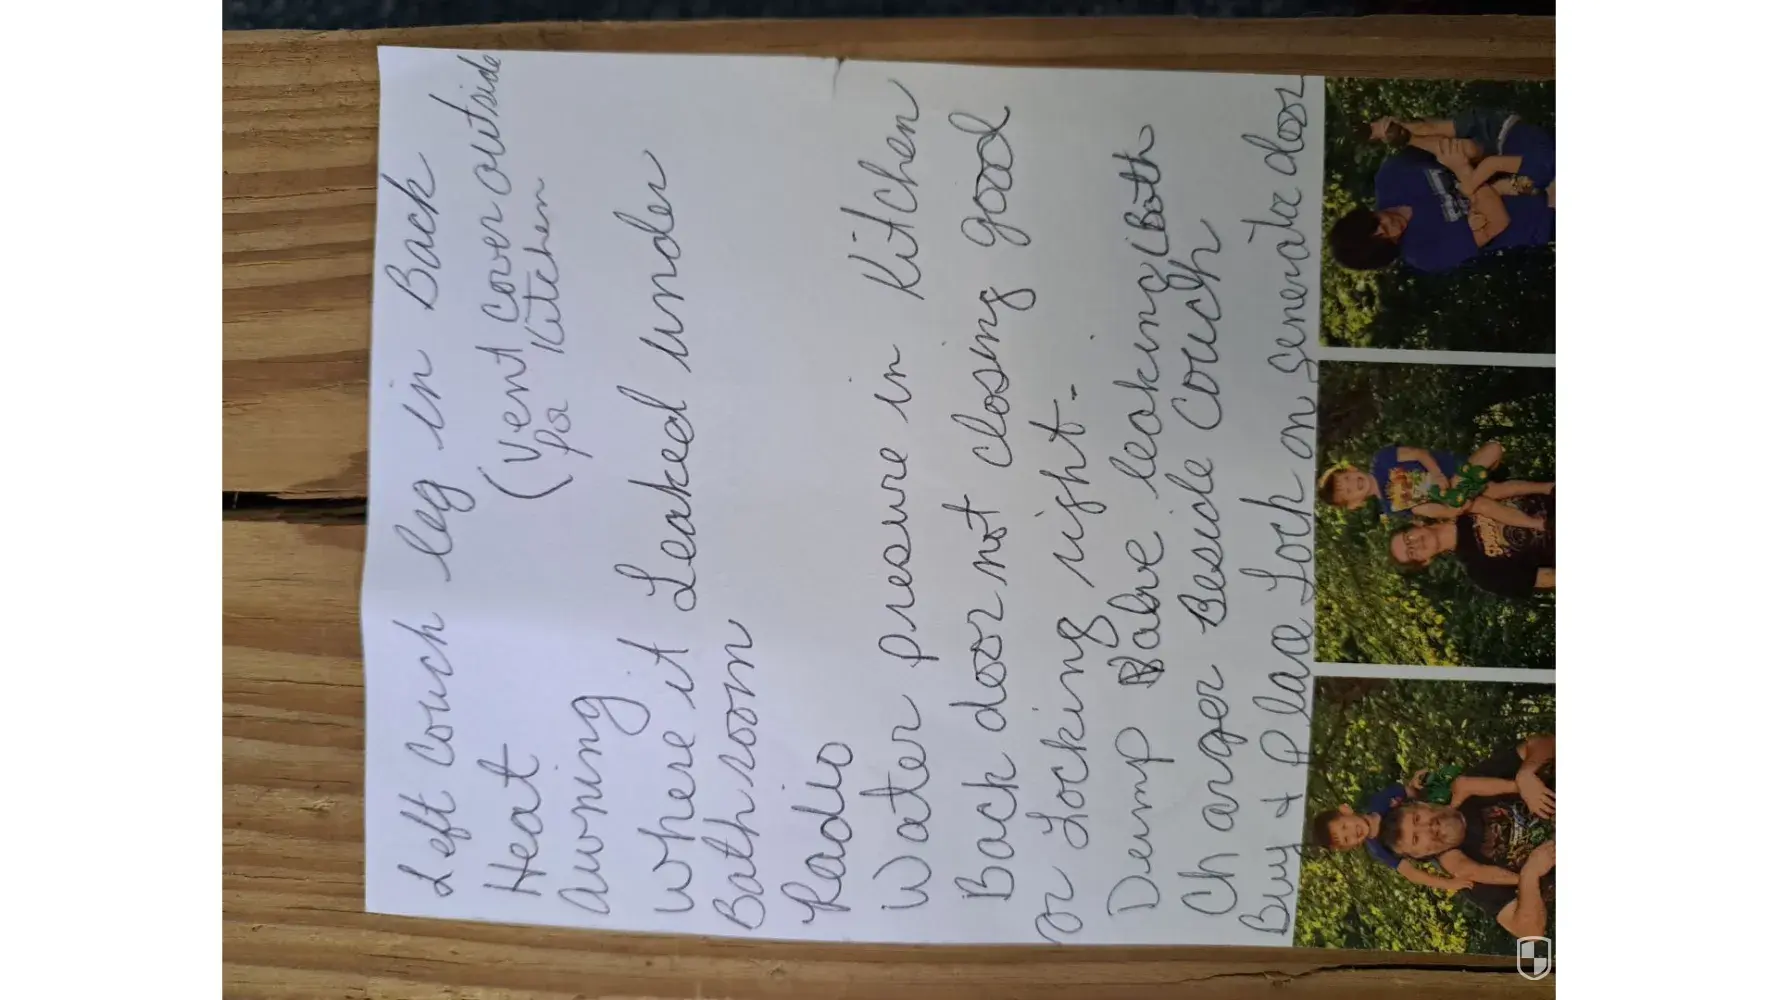 Left Couch leg in Back
Heat
(Vent Cover outside
for Kitchen
Awning
Where it Leaked under
Bathroom
Radio
Water presure in Kitchen
Back door not closing good
or Locking right.
Dump Valve leaking (Both
Charger Beside Couch
Buy + Place Lock on generator door